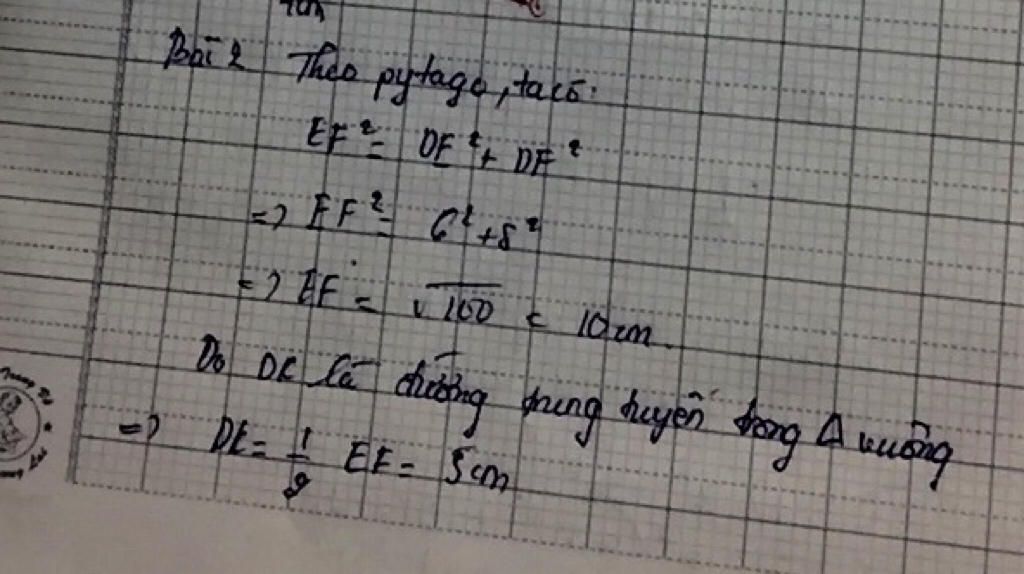 4cm
Bài 2 Theo pytago, ta có:
EF² = DE² + DF²
=> EF² = 6² + 8²
=> EF = √100 = 10cm
Do DK là đường trung tuyến trong Δ vuông
=> DK = 1/2 EF = 5cm